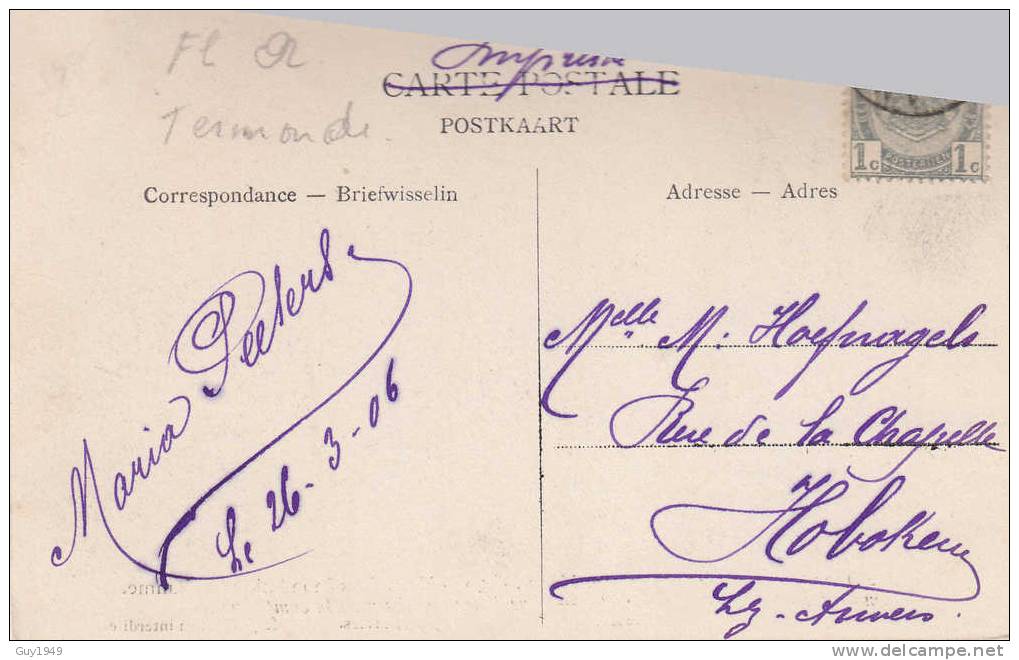 Fl Or
Termonde.
Imprimé
CARTE POSTALE
POSTKAART
1c 1c
Correspondance — Briefwisselin
Adresse — Adres
Maria Peeters
Le 26-3-06
Melle M. Hoefnagels
Rue de la Chapelle
Hoboken
Lez-Anvers.
Guy1949
delcampe.net